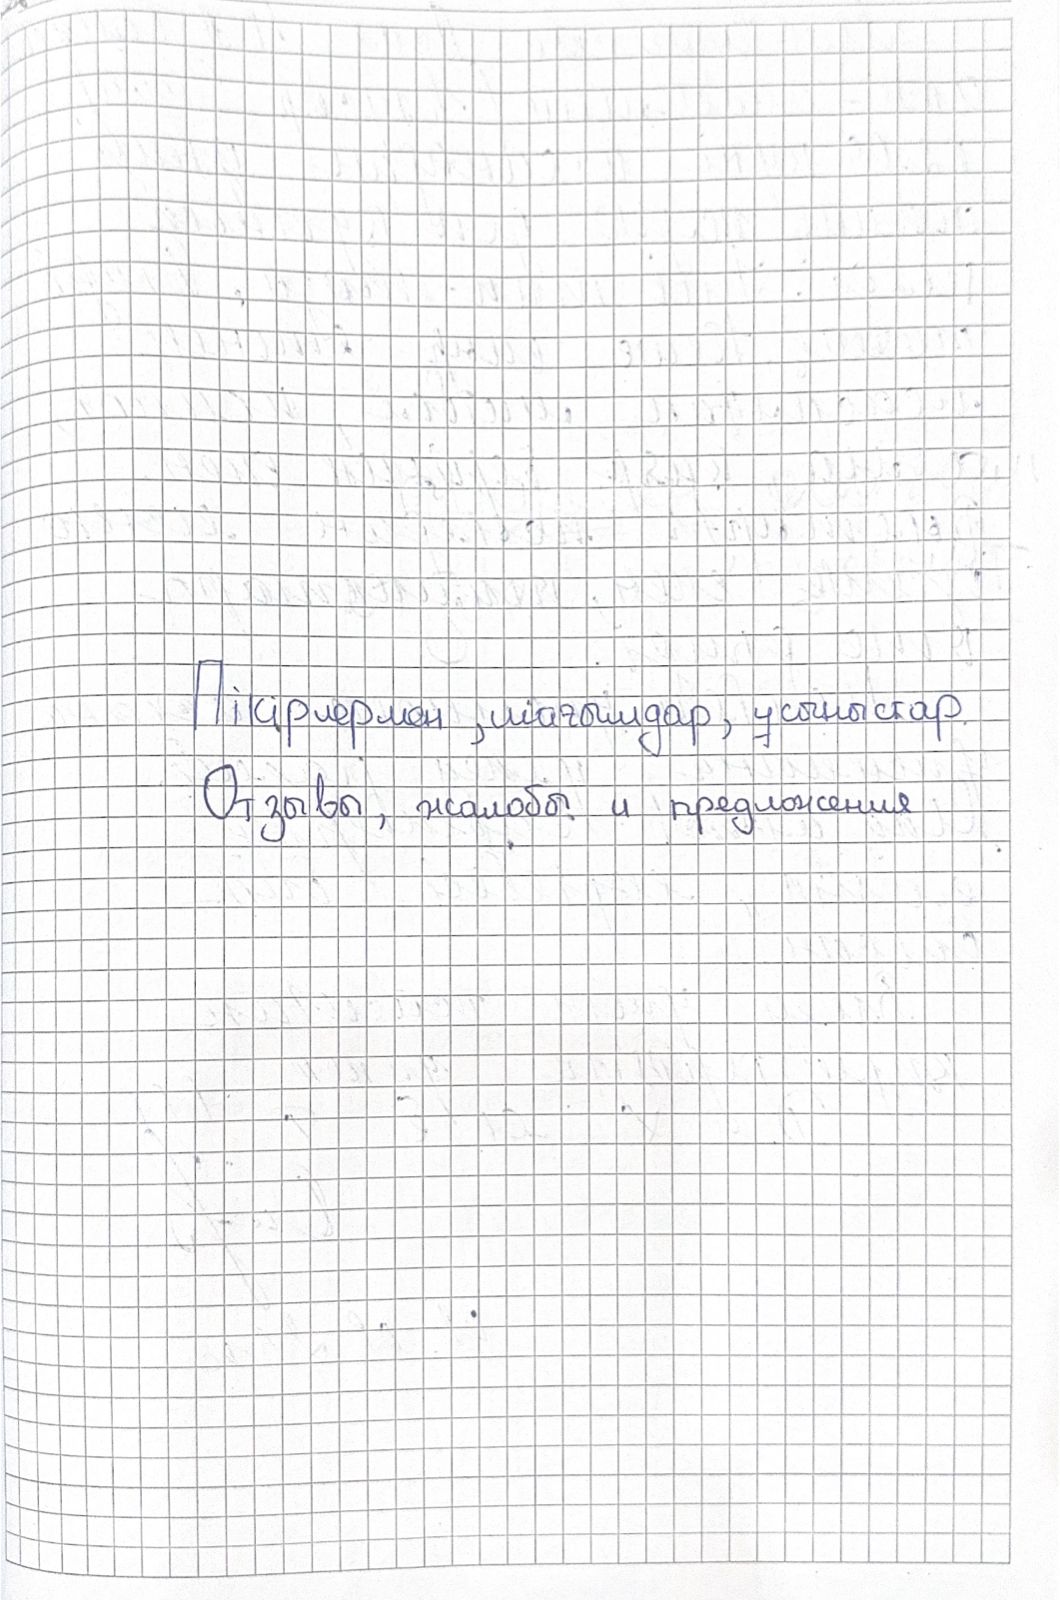 Пікірлермен, шағымдар, ұсыныстар.
Отзывы, жалобы и предложения